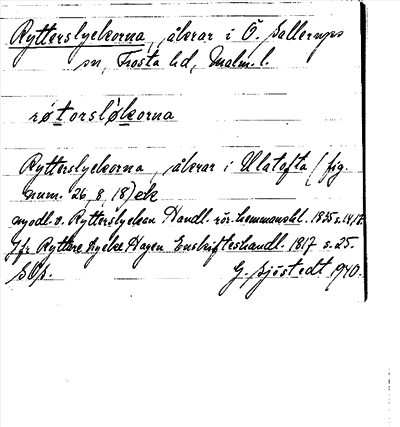 Rytterslyckorna, åkrar i Ö. Sallerups
sn, Frosta hd, Malm. l.
røtorsløkorna
Rytterslyckorna, åkrar i Ulatofta (fig.
num. 26, 8, 18) ek
nyodl. o. Rytterslyckan Handl. rör. hemmanskl. 1835 s.
Jfr Ryttare Lycke Hagen Enskifteshandl. 1817 s. 25.
G. Sjöstedt 1940.